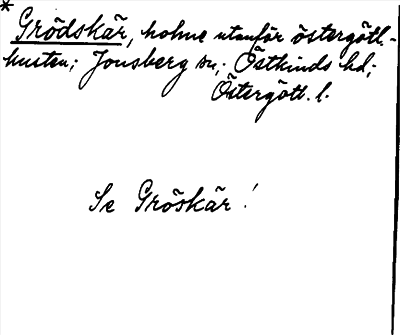 * Grödskär, holme utanför östergötl.-
kusten; Jonsberg sn; Östkinds hd;
Östergötl. l.
Se Gröskär!